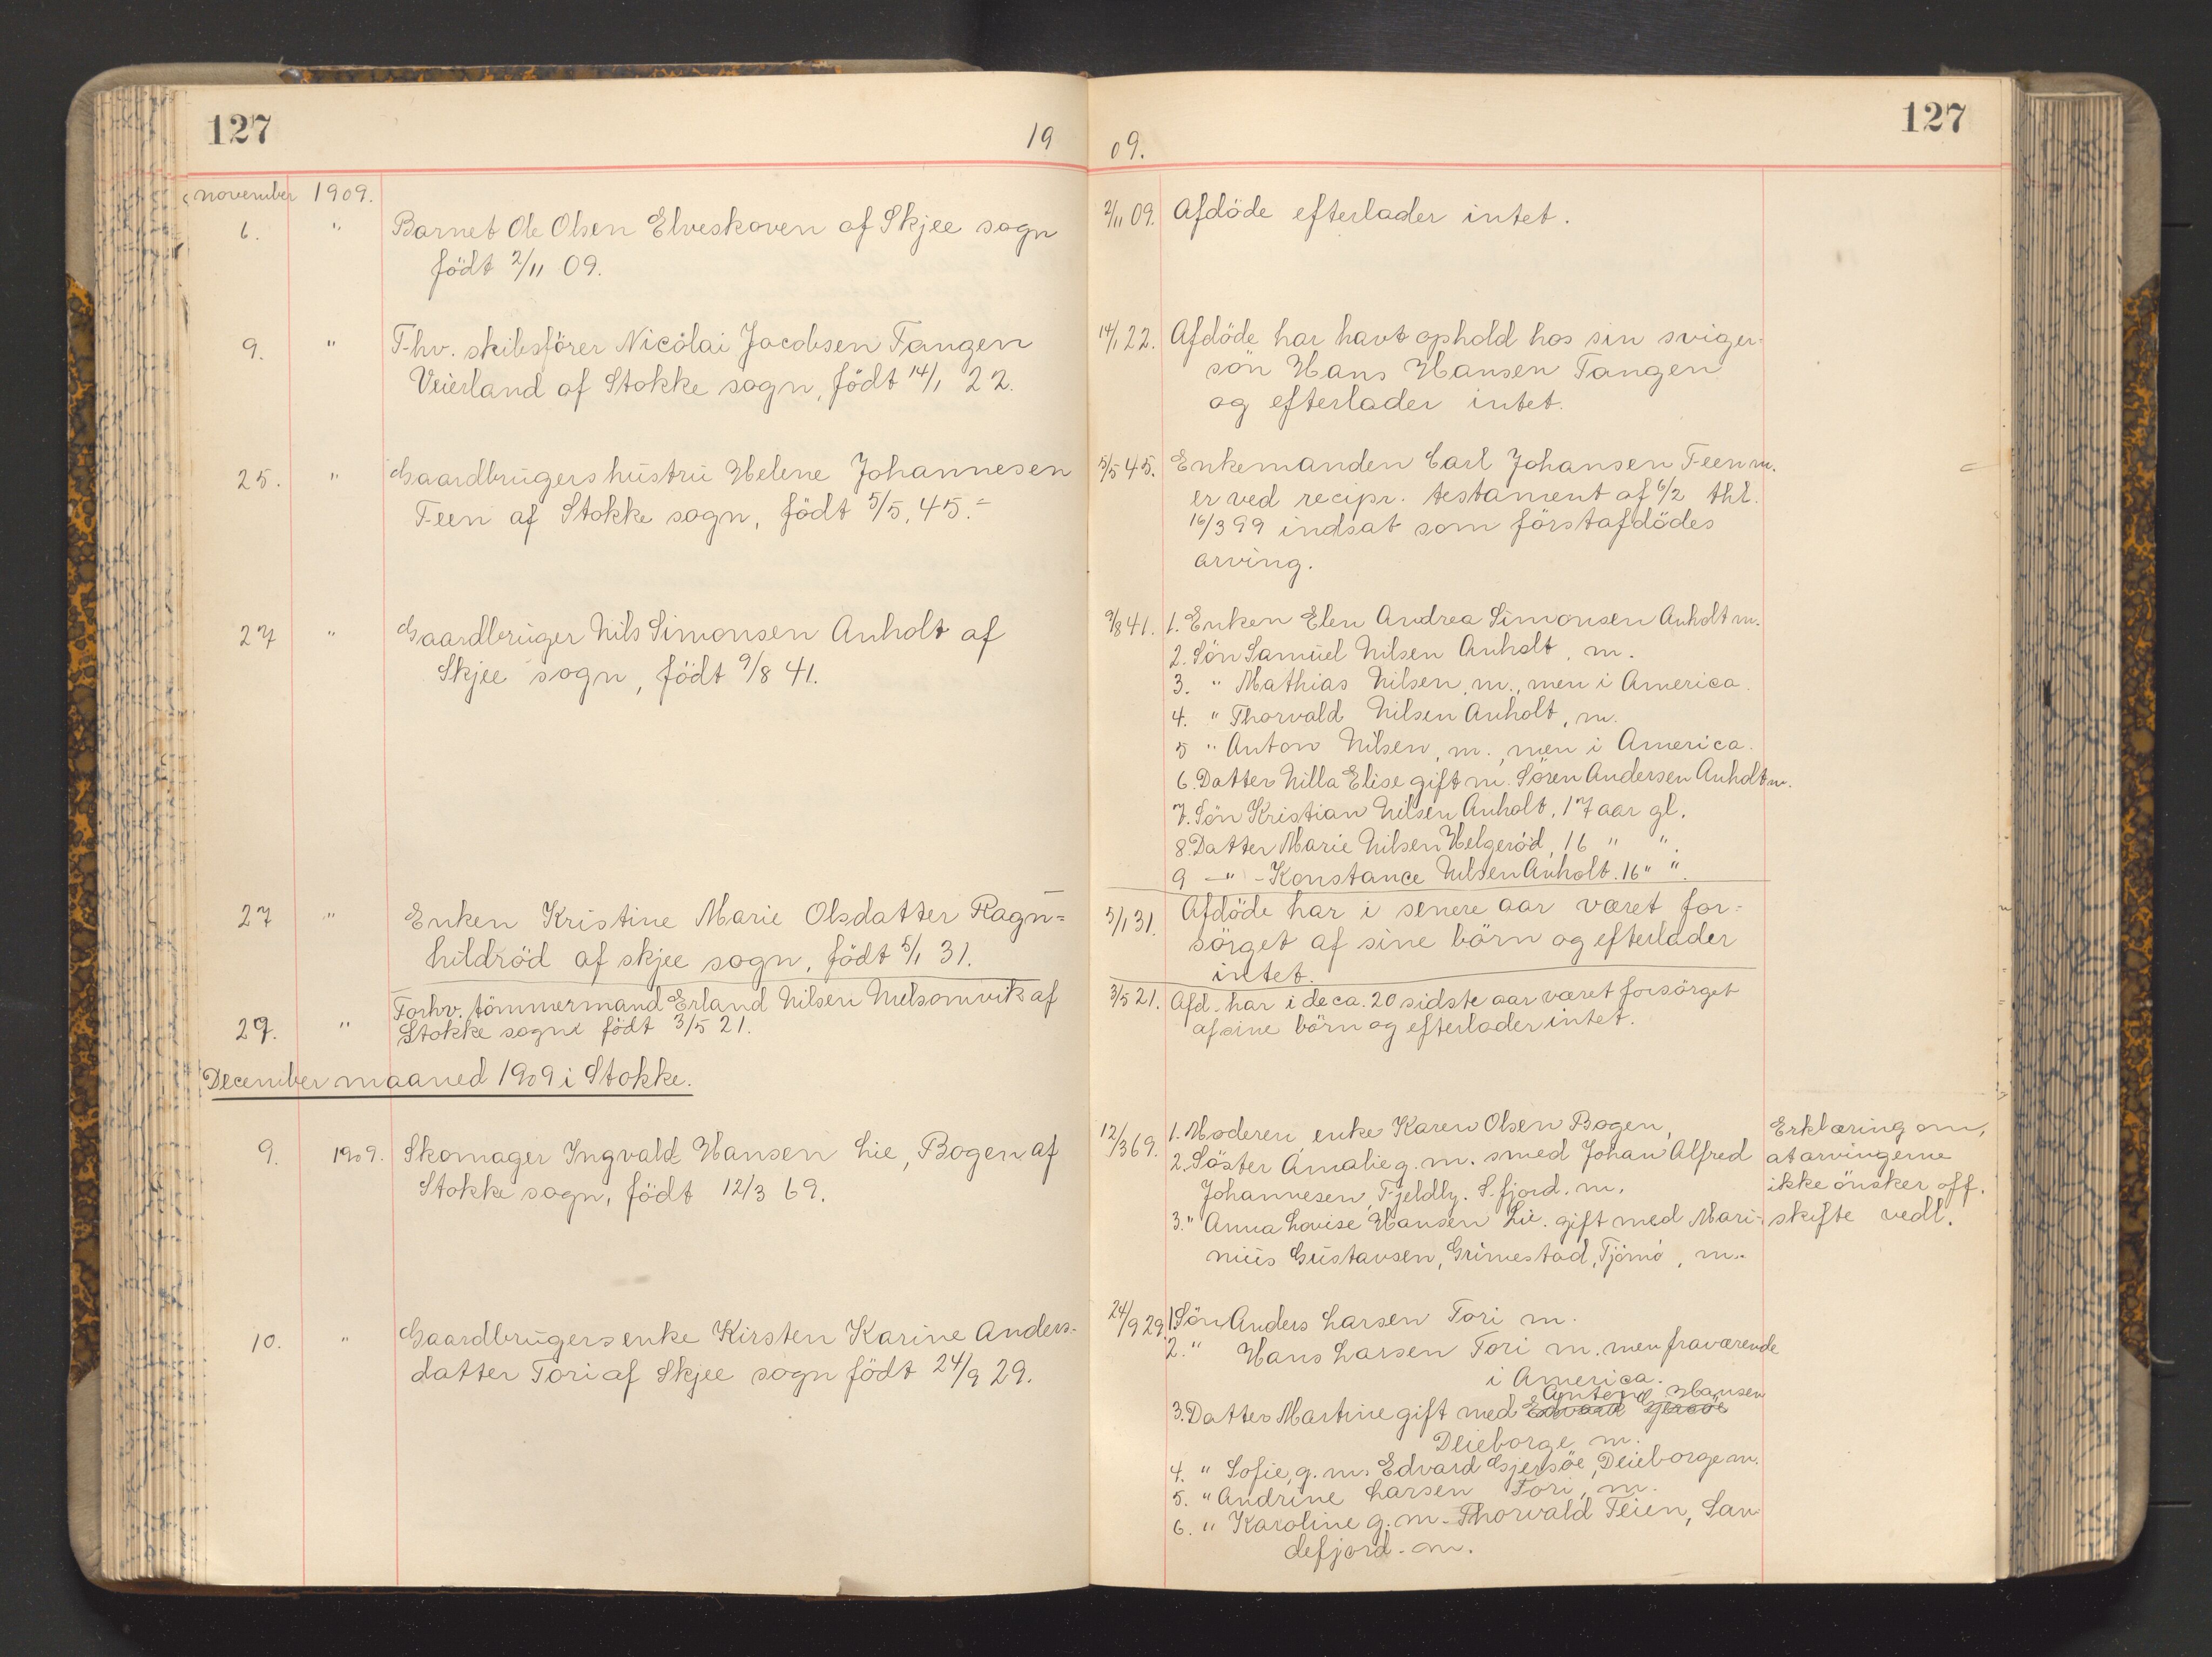 127
19
november 1909.
6. " Barnet Ole Olsen Elveskoven af Skjee sogn
födt 2/11 09.
9. " Fhv. skibsförer Nicolai Jacobsen Tangen
Veierland af Stokke sogn, födt 14/1 22.
25. " Gaardbrugers hustru Helene Johannesen
Feen af Stokke sogn, födt 5/5, 45.
27 " Gaardbruger Nils Simonsen Anholt af
Skjee sogn, födt 9/8 41.
27 " Enken Kristine Marie Olsdatter Ragn=
hildröd af skjee sogn, födt 5/1 31.
Forhv. tömmermand Erland Nilsen Melsomvik af
29. " Stokke sogn födt 3/5 21.
December maaned 1909 i Stokke.
9. 1909. Skomager Ingvald Hansen Lie, Bogen af
Stokke sogn, födt 12/3 69.
10. " Gaardbrugersenke Kirsten Karine Anders-
datter Tori af Skjee sogn födt 24/9 29.
127
09.
2/11 09. Afdöde efterlader intet.
14/1 22. Afdöde har havt ophold hos sin sviger-
sön Hans Hansen Tangen
og efterlader intet.
5/5 45. Enkemanden Carl Johansen Feen m.
er ved recipr. testament af 6/2 thl.
16/3 99 indsat som förstafdödes
arving.
9/8 41. 1. Enken Elen Andrea Simonsen Anholt m.
2. Sön Samuel Nilsen Anholt, m.
3. " Mathias Nilsen, m., men i America.
4. " Thorvald Nilsen Anholt, m.
5 " Anton Nilsen, m., men i America.
6. Datter Nilla Elise gift m. Sören Andersen Anholt m.
7. Sön Kristian Nilsen Anholt, 17 aar gl.
8. Datter Marie Nilsen Helgeröd, 16 " ".
9 -"- Konstance Nilsen Anholt. 16 " ".
5/1 31. Afdöde har i senere aar været for-
sörget af sine börn og efterlader
intet.
3/5 21. Afd. har i de ca. 20 sidste aar været forsörget
af sine börn og efterlader intet.
12/3 69. 1. Moderen, enke Karen Olsen Bogen,
2. Söster Amalie g. m. smed Johan Alfred
Johannesen, Fjeldby. S. fjord. m.
3. " Anna Lovise Hansen Lie. gift med Mari-
nius Gustavsen, Grimestad, Tjömö, m.
Erklæring om,
at arvingerne
ikke önsker off.
skifte vedl.
24/9 29. 1. Sön Anders Larsen Tori m.
2. " Hans Larsen Tori m. men fraværende
i America.
Anton Hansen
3. Datter Martine gift med Edvard Gjersöe
Deieborge m.
4. " Sofie, g. m. Edvard Gjersöe, Deieborge m.
5. " Andrine Larsen Tori, m.
6. " Karoline g. m. Thorvald Feien, San-
defjord. m.